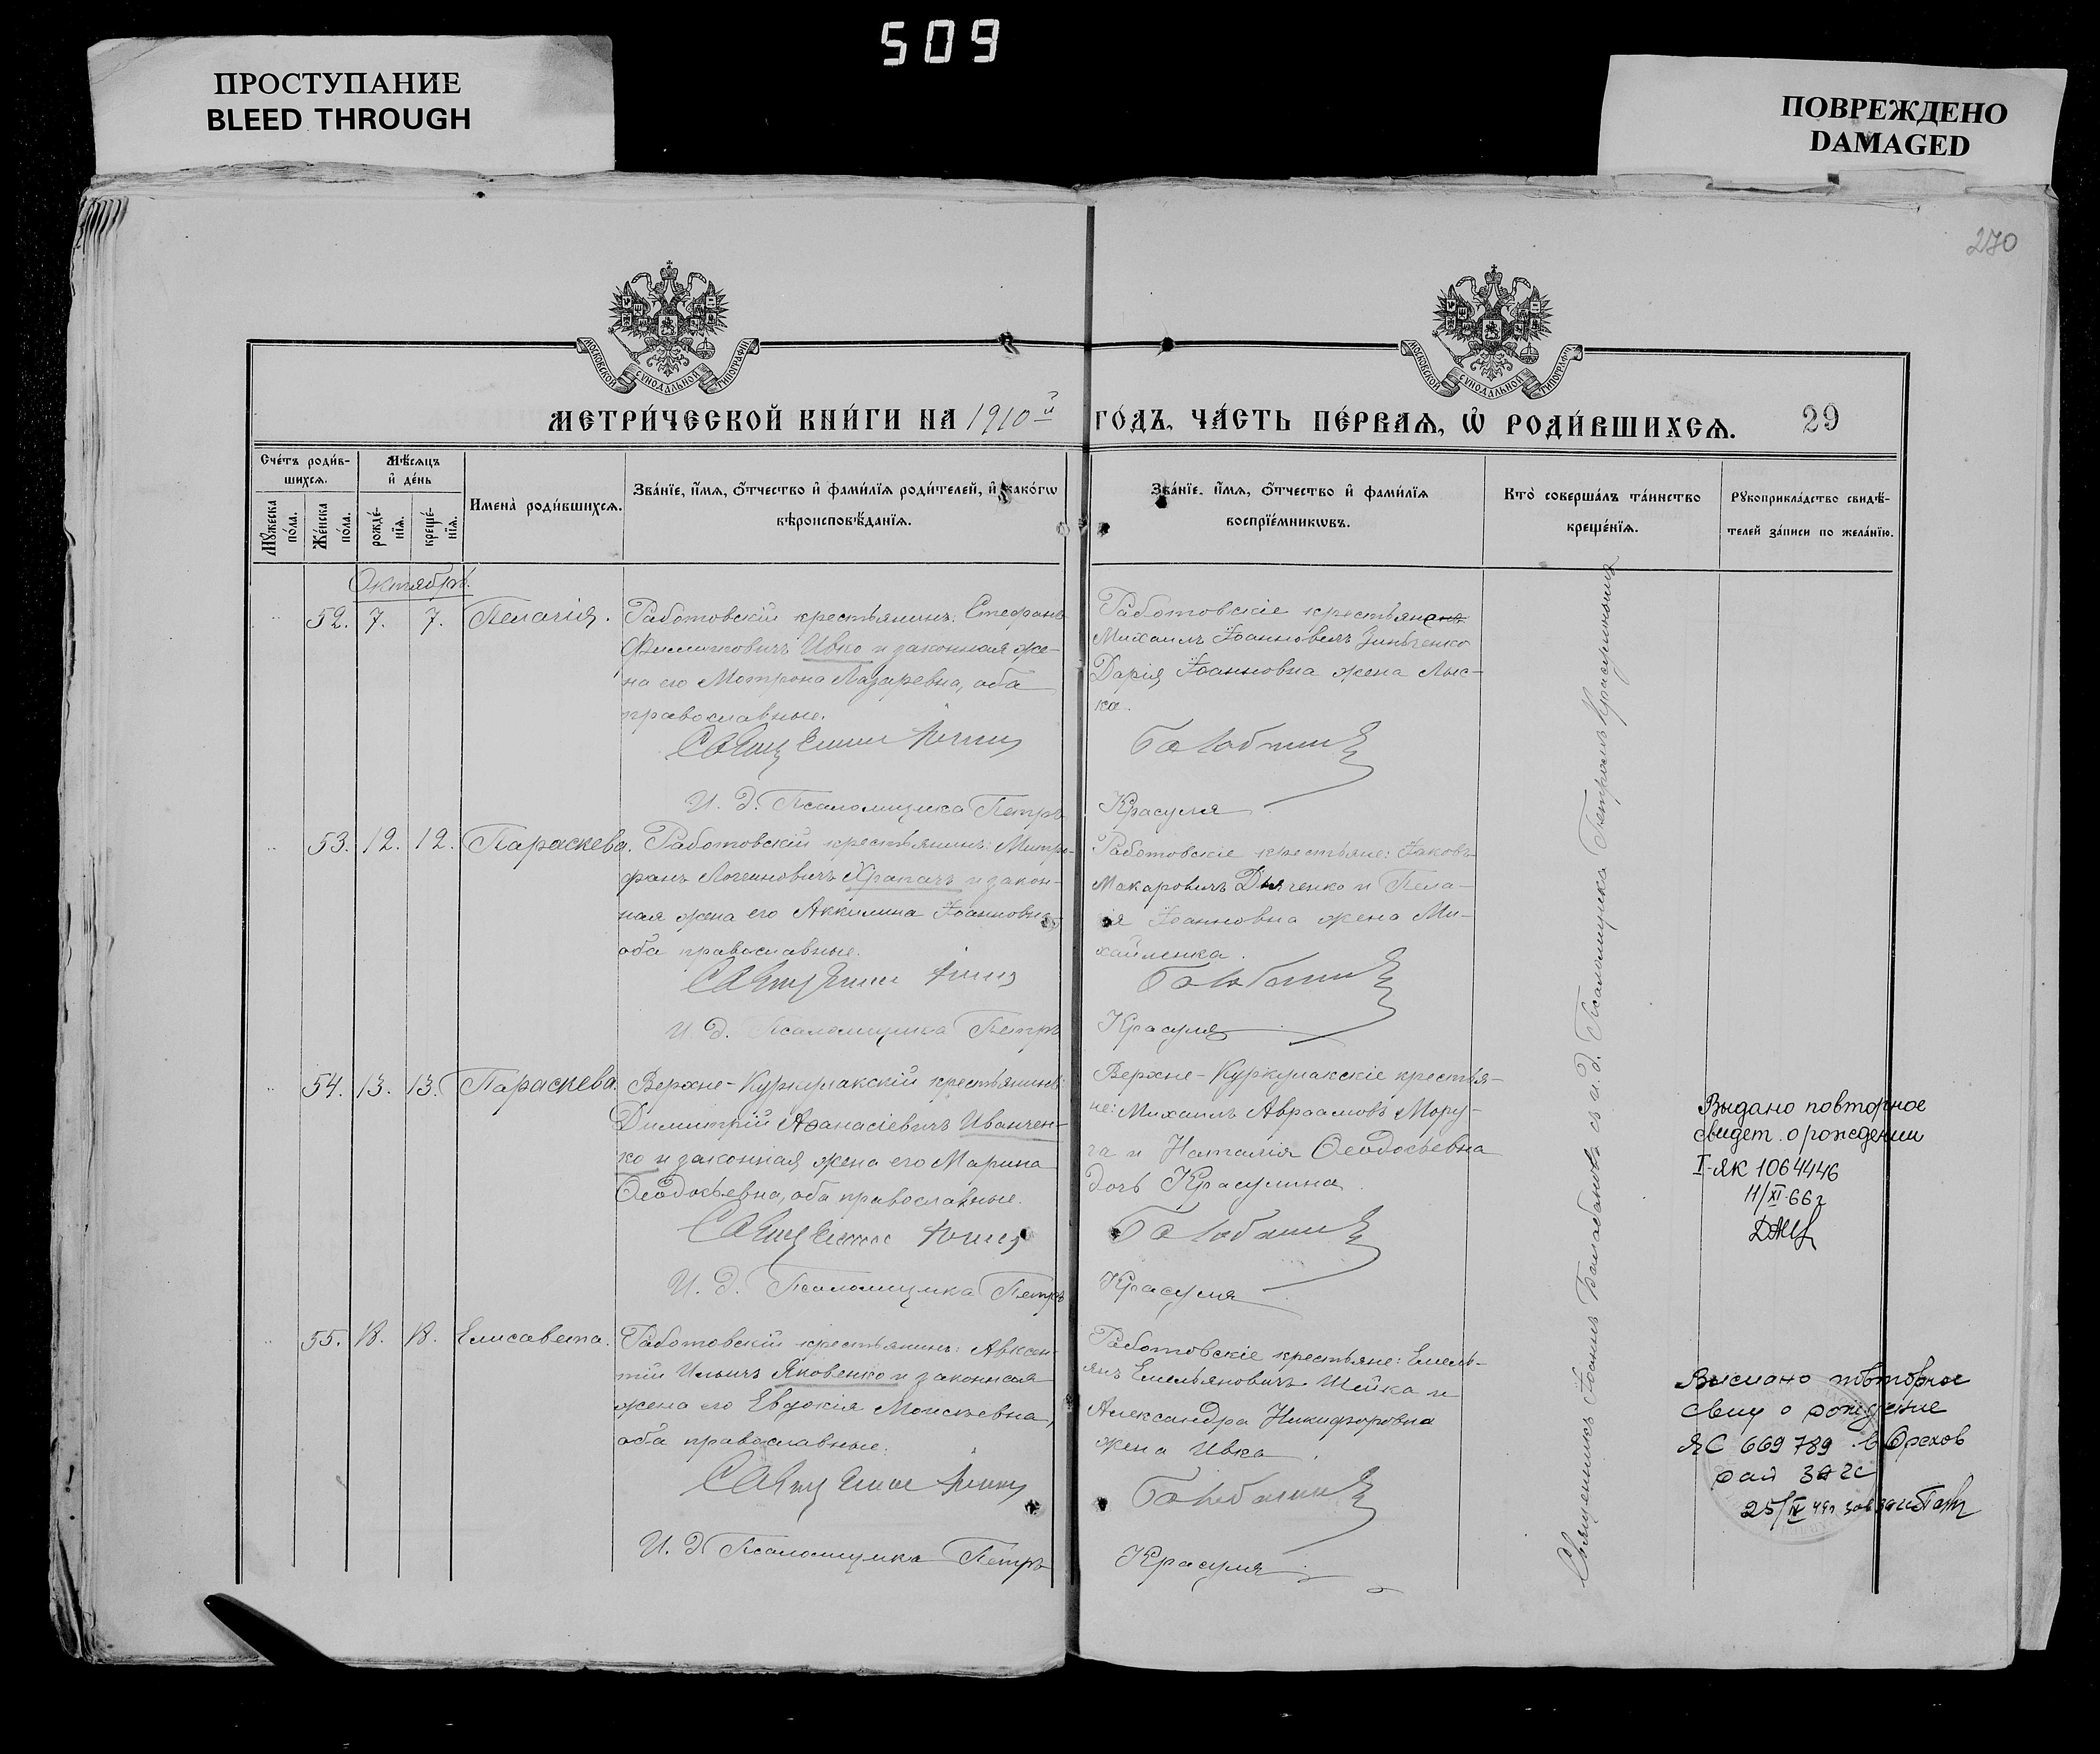 509
ПРОСТУПАНИЕ
BLEED THROUGH
ПОВРЕЖДЕНО
DAMAGED
270
МОСКОВСКОЙ СѴНОДАЛЬНОЙ ТИПОГРАФІИ
МОСКОВСКОЙ СѴНОДАЛЬНОЙ ТИПОГРАФІИ
МЕТРИ́ЧЕСКОЙ КНИ́ГИ НА 1910й ГО́ДЪ, ЧА́СТЬ ПЕ́РВАЯ, Ѡ҆ РОДИ́ВШИХСЯ. 29
Сче́тъ роди́в-
шихся.
Мꙋ́жеска по́ла.
Же́нска по́ла.
Мѣ́сяцъ
и҆ де́нь
рожде́-нїя.
креще́-нїя.
Имена̀ роди́вшихся.
Зва́нїе, и҆́мя, ѻ҆́тчество и҆ фами́лїя роди́телей, и҆ како́гѡ
вѣроисповѣ́данїя.
Зва́нїе, и҆́мя, ѻ҆́тчество и҆ фами́лїя
воспрїе́мникѡвъ.
Кто̀ соверша́лъ та́инство
креще́нїя.
Рꙋкоприкла́дство свидѣ́-
телей за́писи по жела́нїю.
Октябрь.
52. 7. 7. Пелагія.
Работовскій крестьянинъ: Стефанъ
Филиповичъ Ивко и законная же-
на его Мотрона Лазаревна, оба
православные.
Священникъ Іоаннъ
И. д. Псаломщика Петръ
Работовскіе крестьяне
Михаилъ Іоанновичъ Зинченко
Дарія Іоанновна жена Лыс-
ка.
Балабановъ
Красуля
53. 12. 12. Параскева.
Работовскій крестьянинъ: Митро-
фанъ Логиновичъ Храпачъ и закон-
ная жена его Акилина Іоанновна
оба православные.
Священникъ Іоаннъ
И. д. Псаломщика Петръ
Работовскіе крестьяне: Іаковъ
Макаровичъ Дьяченко и Пела-
ія Іоанновна жена Ми-
хайленка.
Балабановъ
Красуля
54. 13. 13. Параскева.
Верхне-Куркулакскій крестьянинъ:
Димитрій Аѳанасіевичъ Иванчен-
ко и законная жена его Марина
Ѳеодосьевна, оба православные.
Священникъ Іоаннъ
И. д. Псаломщика Петръ
Верхне-Куркулакскіе крестья-
не: Михаилъ Авраамовъ Мору-
га и Наталія Ѳеодосьевна
дочь Красулина
Балабановъ
Красуля
Выдано повторное
свидет. о рождении
I-ЯК 1064446
11/XI-66 г
55. 18. 18. Елисавета.
Работовскій крестьянинъ: Авксен-
тій Ильичъ Яковенко и законная
жена его Евдокія Моисеевна,
оба православные.
Священникъ Іоаннъ
И. д. Псаломщика Петръ
Работовскіе крестьяне: Емель-
янъ Емельяновичъ Шейка и
Александра Никифоровна
жена Ивка
Балабановъ
Красуля
повторное
свид о рождение
ЯС 669789 в Орехов
рай загс
25/IV
Священникъ Іоаннъ Балабановъ съ и. д. Псаломщика Петромъ Красулиномъ